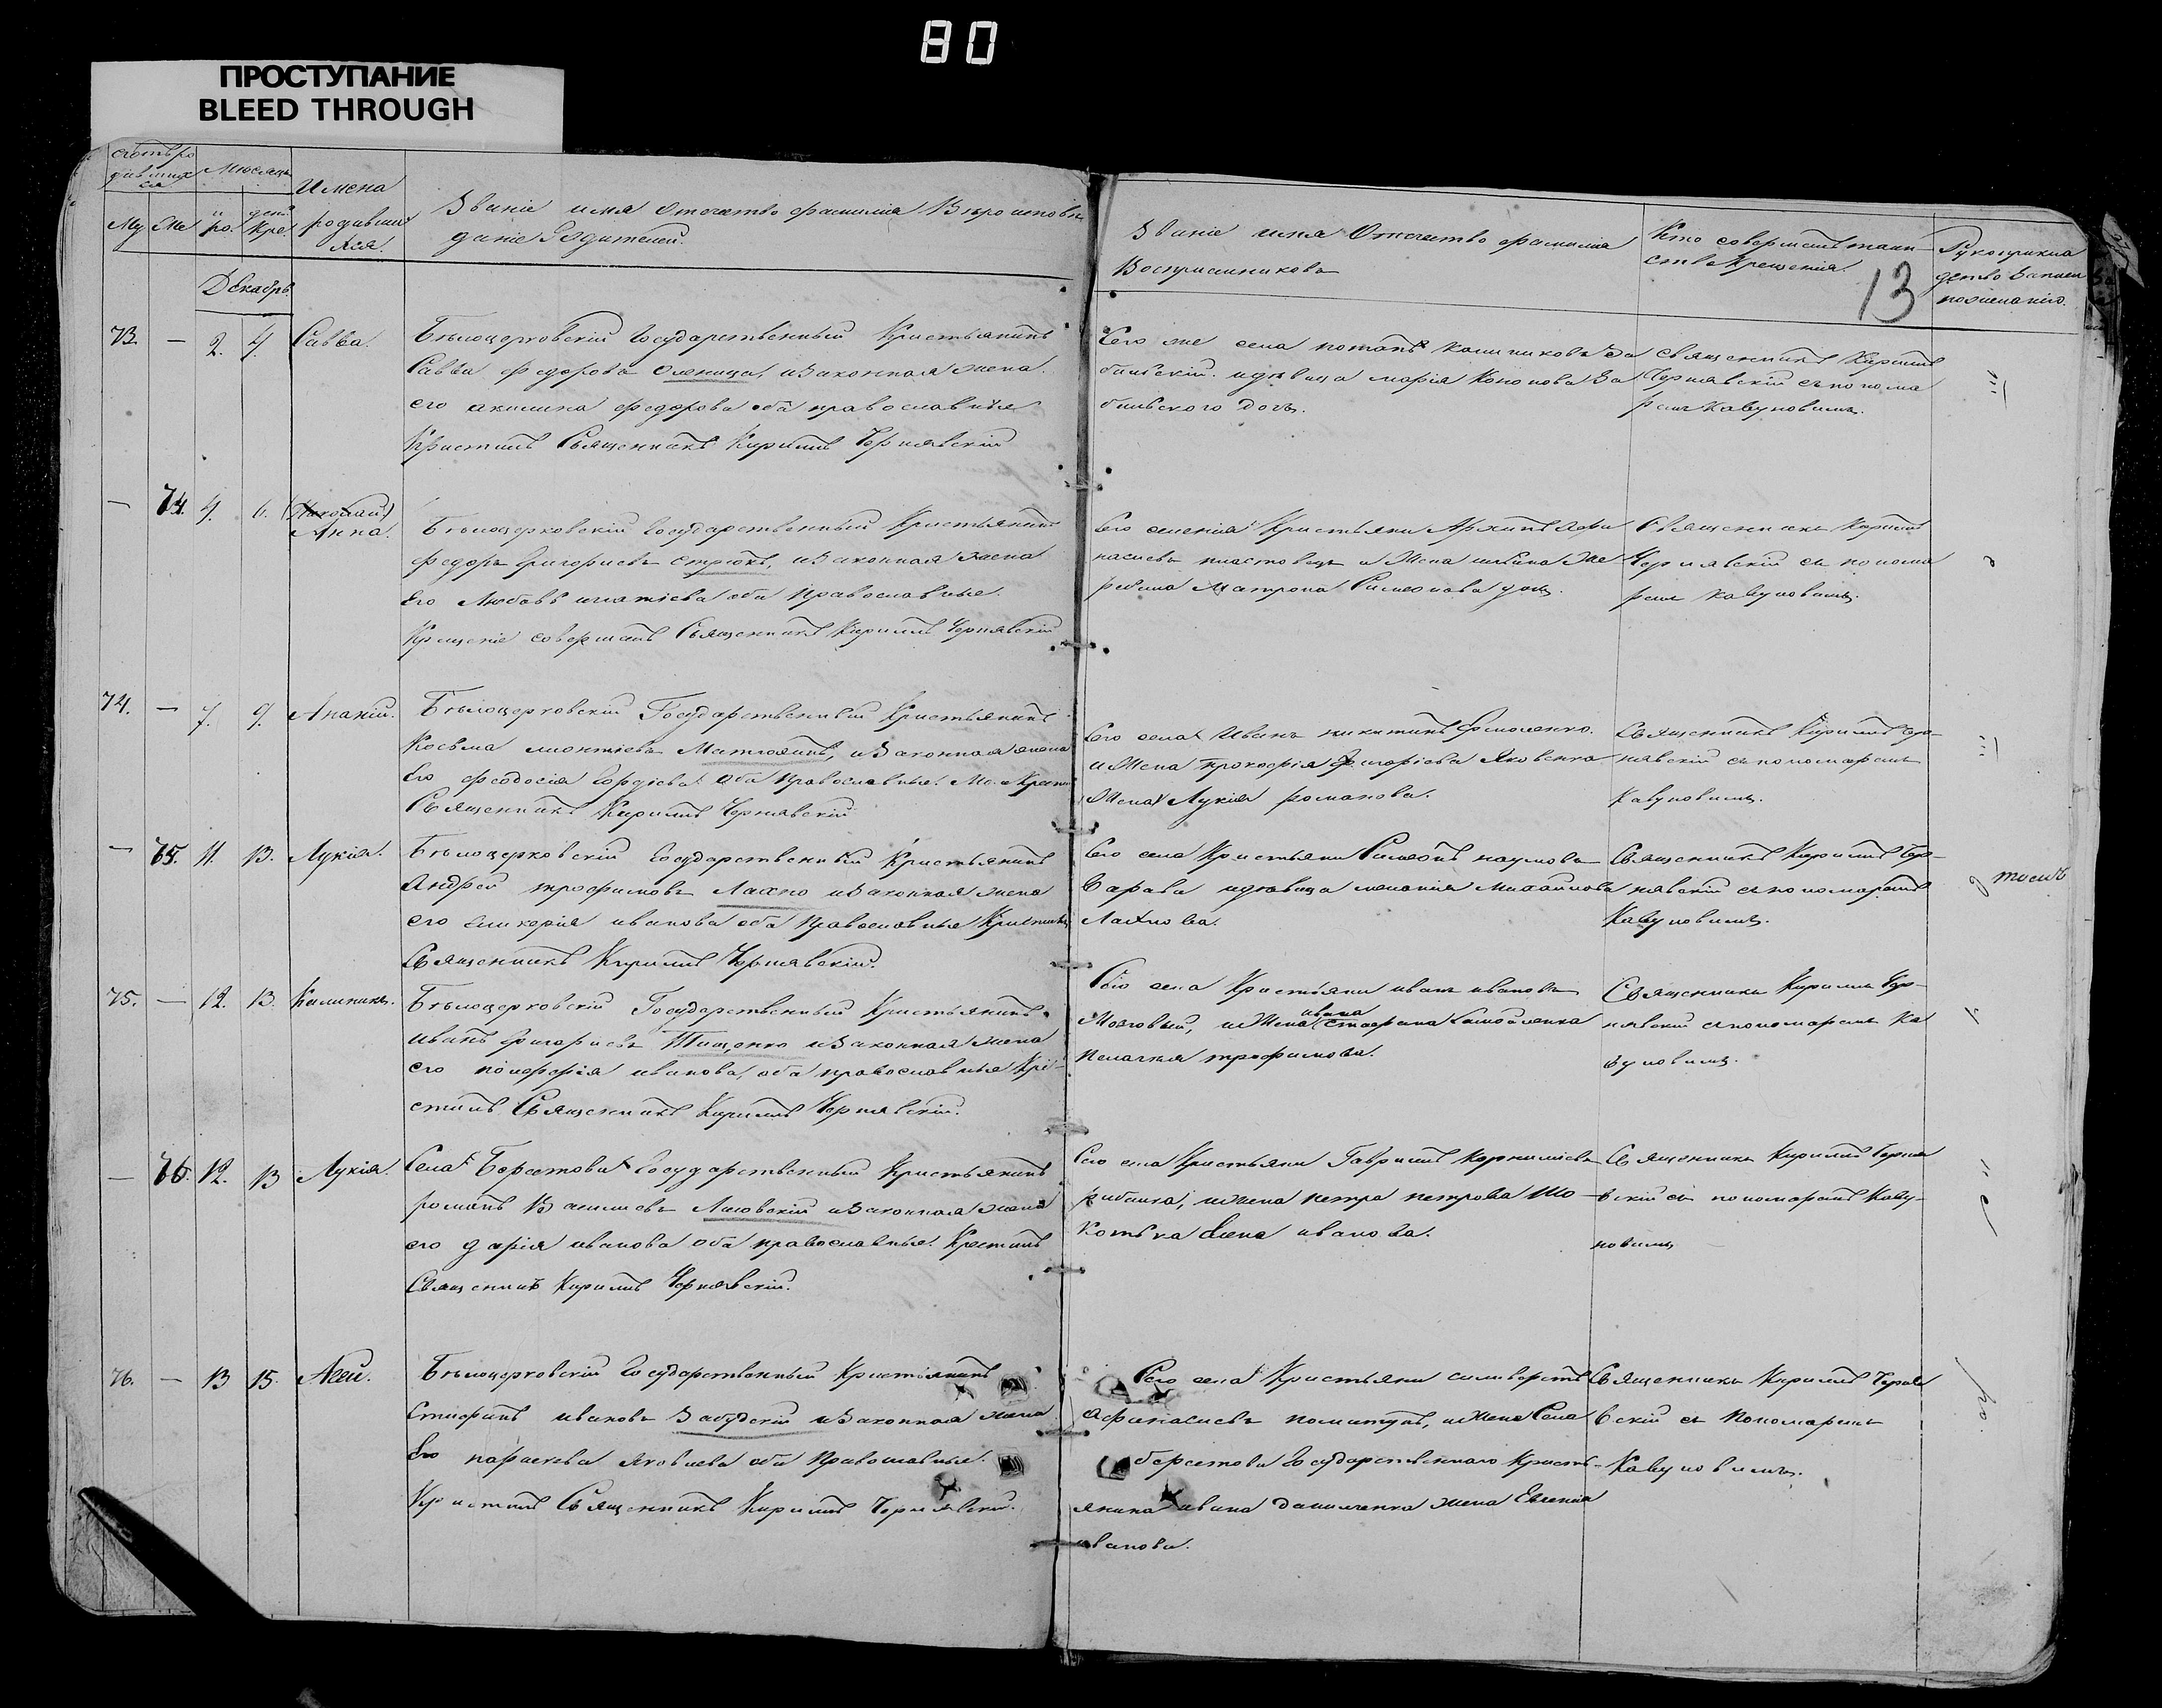 80
ПРОСТУПАНИЕ
BLEED THROUGH
Мѣсяцъ
Имена
родивших
ся.
Му Же ро. кре.
Званіе имя Отечество фамилія Вѣроиспове
даніе Родителей.
Званіе имя Отечество фамилія
Восприемниковъ
Кто совершалъ таин
ство крещенія.
Рукоприкла
дство записи
по желанію.
13
Декабрь
73. — 2. 4. Савва.
Бѣлоцерковскій Государственный Крестьянинъ
Савва федоровъ Оленица, и Законная жена
его акилина федорова оба православные
Крестилъ Священникъ Кирилъ Чернявскій
Сего же села потапъ
и дѣвица марія Кононова За
бильского дочь.
Священникъ Кирилъ
Чернявскій съ понома
ремъ Кавуновимъ.
— 74. 4. 6. (Николай)
Анна.
Бѣлоцерковскій Государственный Крестьянинъ
федоръ Григориевъ Стрюкъ, и Законная жена
Его Любовъ игнатіева оба Православные.
Крещеніе совершалъ Священникъ Кирилъ Чернявскій
Сего селенія Крестьяни Архипъ Афа
насиевъ и Жена
Матрона Симеонова
Священникъ Кирилъ
Чернявскій съ понома
ремъ Кавуновимъ.
74. — 7. 9. Ананій.
Бѣлоцерковскій Государственный Крестьянинъ
Косьма леонтіевъ и Законная жена
Его феодосія Гордіева Оба Православные.
Священникъ Кирилъ Чернявскій
Сего села Иванъ никитинъ Ярмоленко.
и Жена Яковенка
Жена Лукія романова.
Священникъ Кирилъ Чер-
нявскій съ пономаремъ
Кавуновимъ.
— 75. 11. 13. Лукія.
Бѣлоцерковскій Государственный Крестьянинъ
Андрей трофимовъ Лахно и Законная жена
его гликерія иванова оба Православные Крестилъ
Священникъ Кирилъ Чернявскій.
Сего села Крестьяни Симеонъ наумовъ
Барава и дѣвица меланія Михайлова
Лахнова.
Священникъ Кирилъ Чер-
нявскій съ пономаремъ
Кавуновимъ.
75. — 12. 13. Калиникъ.
Бѣлоцерковскій Государственный Крестьянинъ
Иванъ Григориевъ Тищенко и Законная жена
его иванова, оба православные Кре-
стилъ Священникъ Кирилъ Чернявскій.
Сего села Крестьяни иванъ ивановъ
ивана
Мозговый, и Жена Стефана Самойленка
Пелагия трофимова.
Священникъ Кирилъ Чер-
нявскій съ пономаремъ Ка
вуновимъ.
— 76. 12. 13 Лукія.
Села Берестовки Государственный Крестьянинъ
романъ и Законная жена
его дарія иванова Оба православные. Крестилъ
Священникъ Кирилъ Чернявскій.
Сего села Крестьяни Гаврилъ Корнилиевъ
рибалка, и Жена петра петрова
Елена иванова.
Священникъ Кирилъ Черня
вскій съ пономаремъ Каву-
новимъ
76. — 13 15. Агей.
Бѣлоцерковскій Государственный Крестьянинъ
Стефанъ ивановъ Забудскій и Законная жена
Его параскева Яковлева оба Православные.
Крестилъ Священникъ Кирилъ Чернявскій.
Сего села Крестьяни
афанасиевъ и Жена Села
Государственного Кресть-
янина ивана даниленка жена Евгенія
иванова.
Священникъ Кирилъ Черня
вскій съ Пономаремъ
Кавуновимъ.